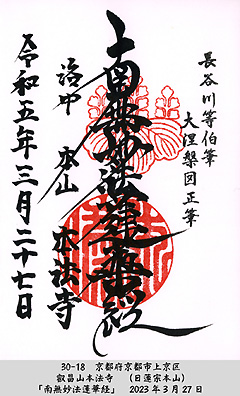 長谷川等伯筆
大涅槃図正筆
南無妙法蓮華経
洛中 本山 本法寺
令和五年三月二十七日
30-18 京都府京都市上京区
叡昌山本法寺 (日蓮宗本山)
「南無妙法蓮華経」 2023年3月27日